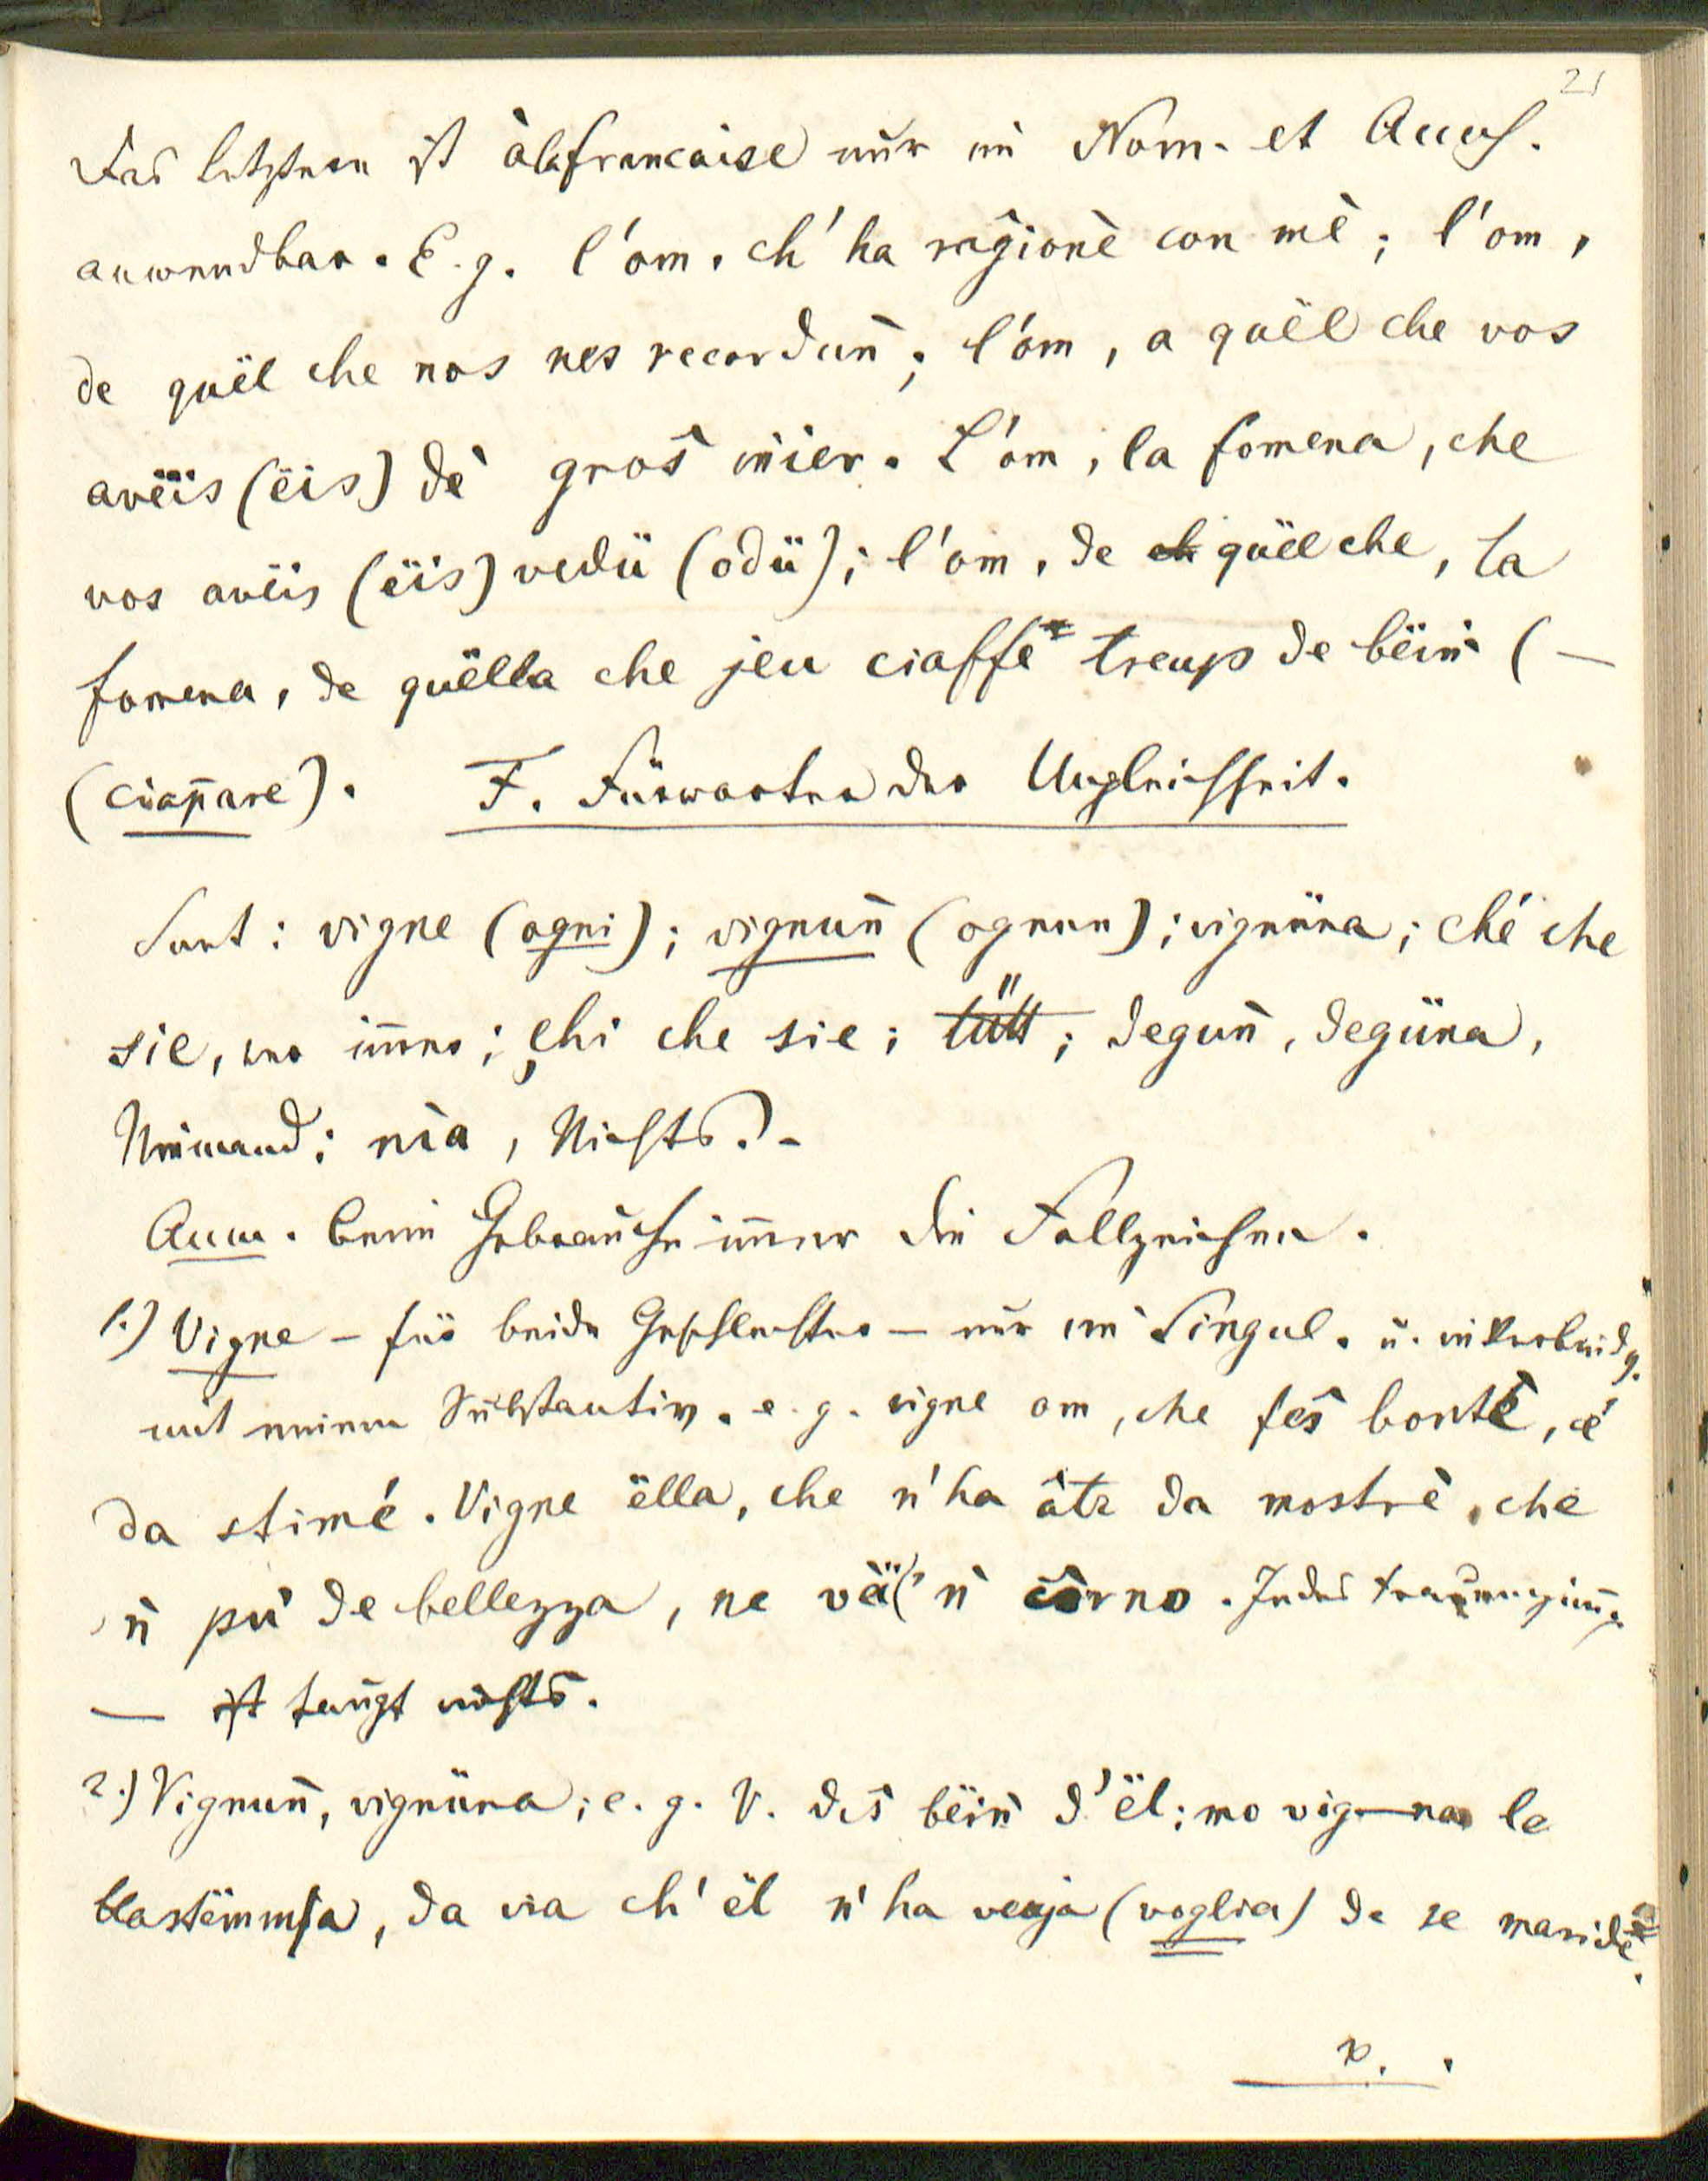 21
Das letztere ist àlafrancaise nur im Nom. et Accus.
anwendbar. E. g. l'om, ch' ha raĝionè con mè; l'om,
de quël che nos nes recordun̄; l'om, a quël che vos
avëis (ëis) dè groŝ inier. L'om, la fomena, che
vos avëis (ëis) vedü (odü); l'om, de quël che, la
fomena, de quëlla che jeu ciaffe treup de bëin (—
(ciap̄are). F. Fürwörter der Ungleichheit.
Sunt: vigne (ogni); vignun̄ (ognun); vignüna; ché che
sie, wer im̄er; chi che sie; tütt; degun̄, degüna,
Niemand; nia, Nichts. -
Anm. Beim Gebrauche im̄er die Fallzeichen.
1.) Vigne – für beide Geschlechter – nur im Singul. u. in Verbindg.
mit einem Substantiv. e. g. vigne om, che feŝ bontè, é
da stimé. Vigne ëlla, che n'ha âtr da mostrè, che
'n pü de bellezza, ne väl 'n corno. Jedes
— ist taugt nichts.
2.) Vignun̄, vignüna; e. g. V. diŝ bëin d'ël; mo vig—na le
blastëmmia, da via ch' ël n' ha veuja (voglia) de se maridè.